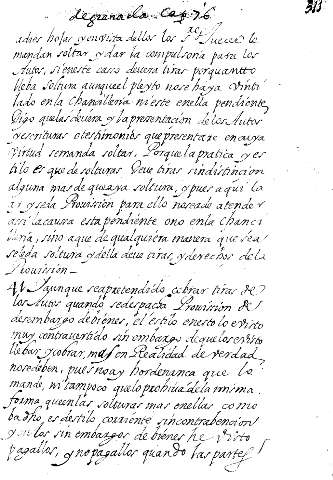 de granada Cap 76
313
autos, y en vista dellos los s.res Jueces le
mandan soltar, y dar la compulsoria para los
Autos, si en este caso deuen tiras por quanto
lleba soltura aunque el pleyto no se haya
lado en la Chancilleria ni este en ella pendiente
Digo que las deuen, y la presentacion de los Autos
y escrituras o testimonios que presentare en cuya
virtud se manda soltar, Porque la pratica y es
tilo es que de solturas deue tiras sin distincion
alguna mas de que aya soltura, o pues aqui la
ay y se da Provision para ello no se ade atender
assi la causa esta pendiente o no en la Chanci
lleria, sino a que de qualquiera manera que sea
se le da soltura y della deue tiras, y derechos de la
Provision
Y aunque se a pretendido cobrar tiras de
los Autos quando se despacha Provision de
desembargo de bienes, el estilo en esto lo e visto
muy controvertido sin embargo de que los e visto
llebar y cobrar, mas en Realidad de verdad
no se deben, pues no ay hordenanza que lo
mande, ni tampoco que lo prohiva de la misma
forma que en las solturas mas en ellas como
ba dho, es de stilo corriente sin contrabencion
y en los sin embargos de bienes he visto
pagallos, y no pagallos quando las partes